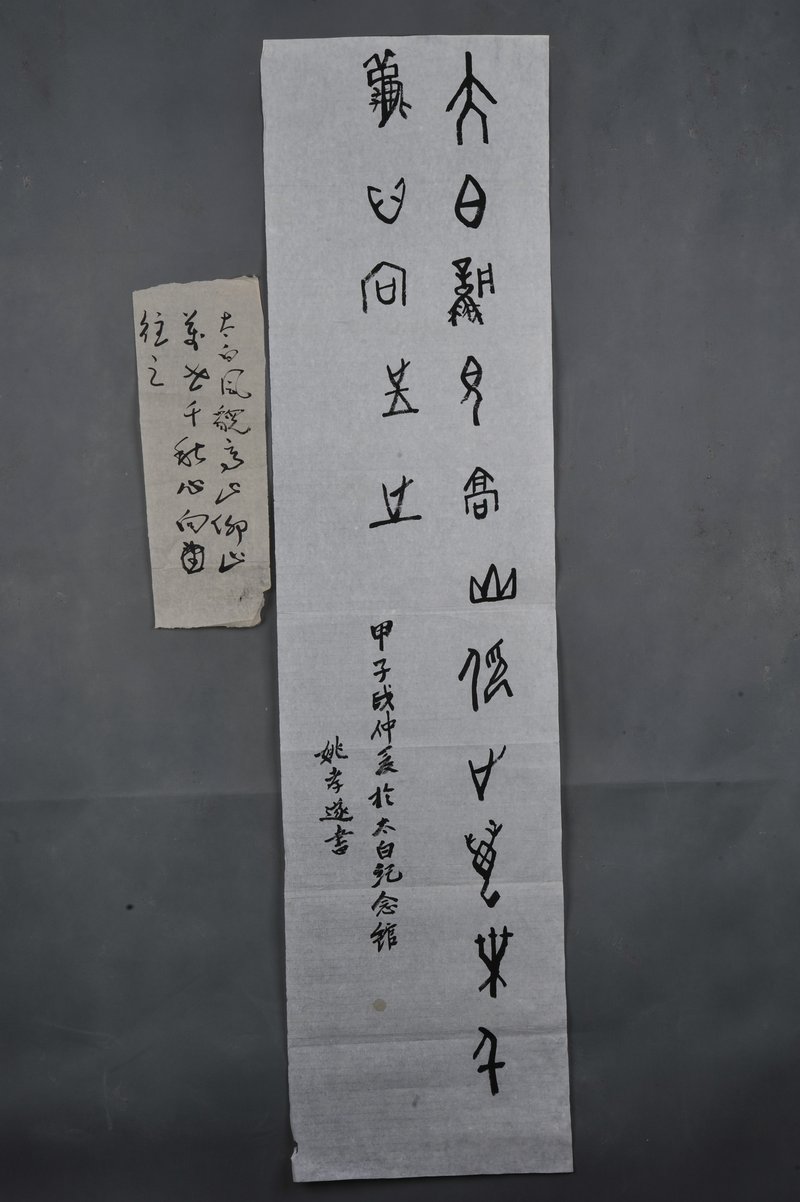 太白風皃高山仰止萬世千
秋心向往之
甲子歲仲夏於太白纪念館
姚孝遂書
太白风貌高山仰止
萬世千秋心向
往之